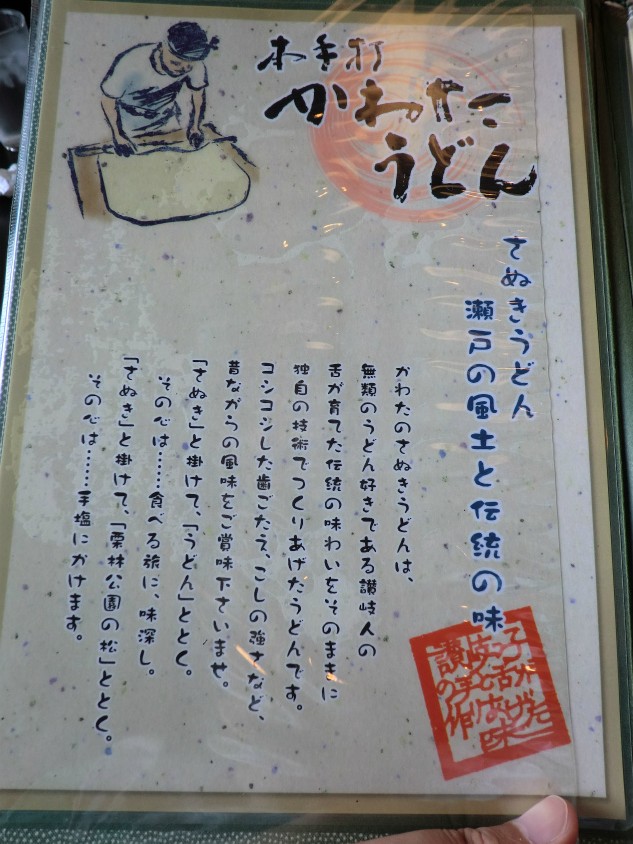 本手打
かわたに
うどん
さぬきうどん
瀬戸の風土と伝統の味
かわたのさぬきうどんは、
無類のうどん好きである讃岐人の
舌が育てた伝統の味わいをそのままに
独自の技術でつくりあげたうどんです。
コシコシした歯ごたえ、こしの強さなど、
昔ながらの風味をご賞味下さいませ。
「さぬき」と掛けて、「うどん」ととく。
その心は……食べる旅に、味深し。
「さぬき」と掛けて、「栗林公園の松」ととく。
その心は……手塩にかけます。